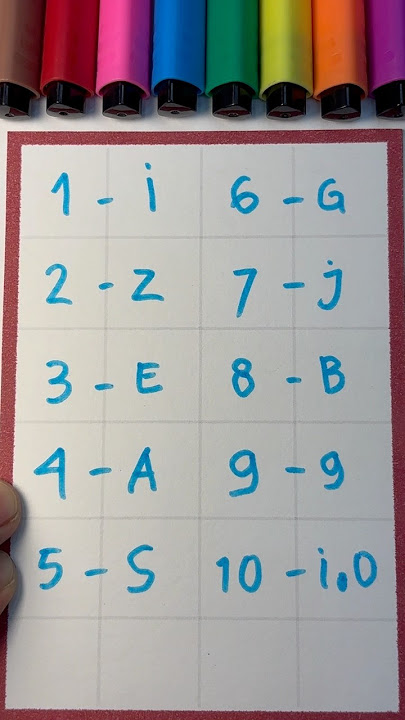 1 - i
2 - Z
3 - E
4 - A
5 - S
6 - G
7 - j
8 - B
9 - 9
10 - i.0